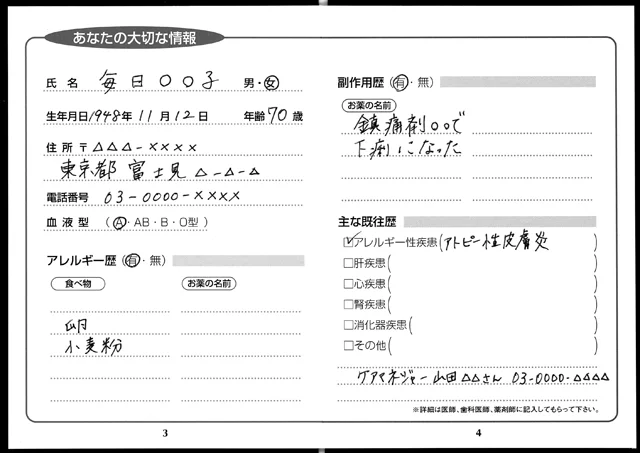 あなたの大切な情報
氏名 毎日○○子 男・女
生年月日 1948年 11月 12日 年齢 70歳
住所 〒△△△-××××
東京都 富士見 △-△-△
電話番号 03-0000-××××
血液型 (A・AB・B・O型)
アレルギー歴 (有・無)
食べ物 お薬の名前
卵
小麦粉
3
副作用歴 (有・無)
お薬の名前
鎮痛剤○○で
下痢になった
主な既往歴
☑アレルギー性疾患(アトピー性皮膚炎)
□肝疾患( )
□心疾患( )
□腎疾患( )
□消化器疾患( )
□その他( )
ケアマネジャー 山田△△さん 03-0000-△△△△
※詳細は医師、歯科医師、薬剤師に記入してもらって下さい。
4